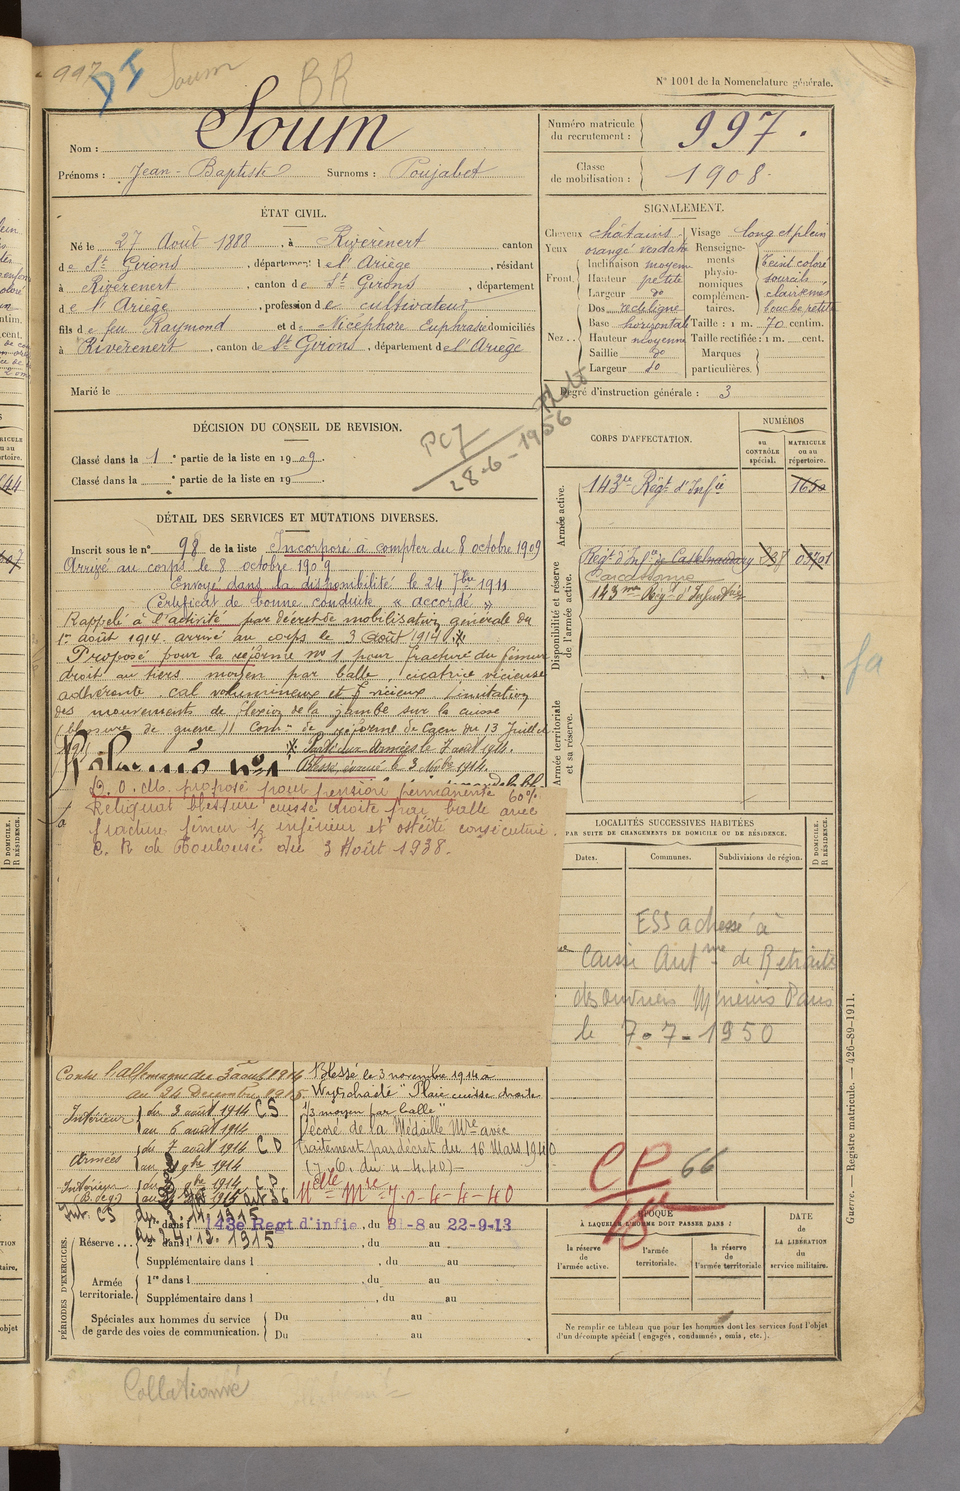 997 DI Soum BR
N° 1001 de la Nomenclature générale.
Nom : Soum
Prénoms : Jean-Baptiste Surnoms : Poujabet
Numéro matricule du recrutement : 997.
Classe de mobilisation : 1908.
ÉTAT CIVIL.
Né le 27 Août 1888, à Rivèrenert canton
de St Girons, département de l'Ariège, résidant
à Rivèrenert, canton de St Girons, département
de l'Ariège, profession de cultivateur
fils de feu Raymond et de Nicéphore Euphrasie domiciliés
à Rivèrenert, canton de St Girons, département de l'Ariège
Marié le
SIGNALEMENT.
Cheveux châtains Visage long et plein
Yeux orangé verdâtre
Front. Inclinaison moyenne
Hauteur petite
Largeur do
Nez.. Dos rectiligne
Base horizontale
Hauteur moyenne
Saillie do
Largeur do
Renseignements physionomiques complémentaires. Teint coloré
sourcils
clairsemés
bouche petite
Taille : 1 m. 70 centim.
Taille rectifiée : 1 m. cent.
Marques particulières.
Degré d'instruction générale : 3
DÉCISION DU CONSEIL DE REVISION.
Classé dans la 1 e partie de la liste en 1909.
Classé dans la e partie de la liste en 19
28-6-1956
DÉTAIL DES SERVICES ET MUTATIONS DIVERSES.
Inscrit sous le n° 98 de la liste Incorporé à compter du 8 octobre 1909
Arrivé au corps le 8 octobre 1909
Envoyé dans la disponibilité le 24 7bre 1911
Certificat de bonne conduite « accordé »
Rappelé à l'activité par décret de mobilisation générale du
1er août 1914. arrivé au corps le 3 août 1914 *
Proposé pour la réforme no 1 pour fracture du fémur
droit au tiers moyen par balle, cicatrice vicieuse
adhérente, cal volumineux et vicieux, limitation
des mouvements de flexion de la jambe sur la cuisse
(blessure de guerre) Com de réforme de Caen du 13 Juillet
* Parti aux armées le 7 août 1914.
Blessé, évacué le 3 Novbre 1914.
Réforme n°1
D.O.M. proposé pour pension permanente 60%.
Reliquat blessure cuisse droite par balle avec
fracture fémur inférieur et ostéite consécutive.
C. R. de Toulouse du 3 Août 1938.
CORPS D'AFFECTATION.
NUMÉROS
au CONTRÔLE spécial.
MATRICULE ou au répertoire.
Armée active.
143e Régt d'Infie 1650
Disponibilité et réserve de l'armée active.
Regt d'Infie de Castelnaudary
Carcassonne
143me Régt d'Infanterie
Armée territoriale et sa réserve.
LOCALITÉS SUCCESSIVES HABITÉES
PAR SUITE DE CHANGEMENTS DE DOMICILE OU DE RÉSIDENCE.
Dates. Communes. Subdivisions de région.
D DOMICILE. R RÉSIDENCE.
ESS adressé à
Caisse Autme de Retraite
des ouvriers Mineurs Paris
le 7-7-1950
Contre l'Allemagne du 3 août 1914
au 24 Décembre 1915.
Intérieur du 3 août 1914 CS
au 6 août 1914
Armées du 7 août 1914 CD
au 9bre 1914
Intérieur (B. de g.) du 9bre 1914 CP
Int. CS
au 24.12.1915
Blessé le 3 novembre 1914 à
Wytschaete "Plaie cuisse droite
1/3 moyen par balle"
Décoré de la Médaille Mre avec
traitement par décret du 16 Mars 1940
(J.O. du 4.4.40)
Mlle Mre J.O-4-4-40
CP 66
PÉRIODES D'EXERCICES.
Réserve... 1re dans l 143e Regt d'infie, du 31-8 au 22-9-13
2e dans l , du au
Supplémentaire dans l , du au
Armée territoriale. 1re dans l , du au
Supplémentaire dans l , du au
Spéciales aux hommes du service de garde des voies de communication. Du au
Du au
ÉPOQUE
À LAQUELLE L'HOMME DOIT PASSER DANS :
la réserve de l'armée active.
l'armée territoriale.
la réserve de l'armée territoriale
DATE de LA LIBÉRATION du service militaire.
Ne remplir ce tableau que pour les hommes dont les services font l'objet
d'un décompte spécial (engagés, condamnés, omis, etc.).
Guerre. — Registre matricule. — 426-89-1911.
Collationné